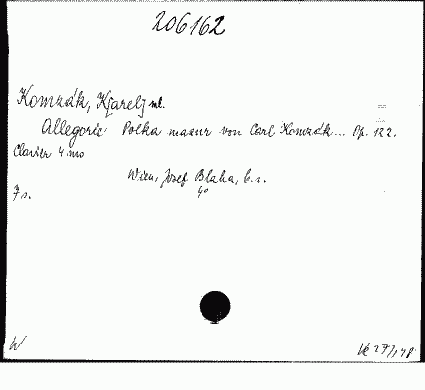 206162
Komzák, K[arel] ml.
Allegorie Polka mazur von Carl Komzák... Op. 122.
Clavier 4 ms
Wien, Josef Blaha, b.r.
7 s. 4°
W